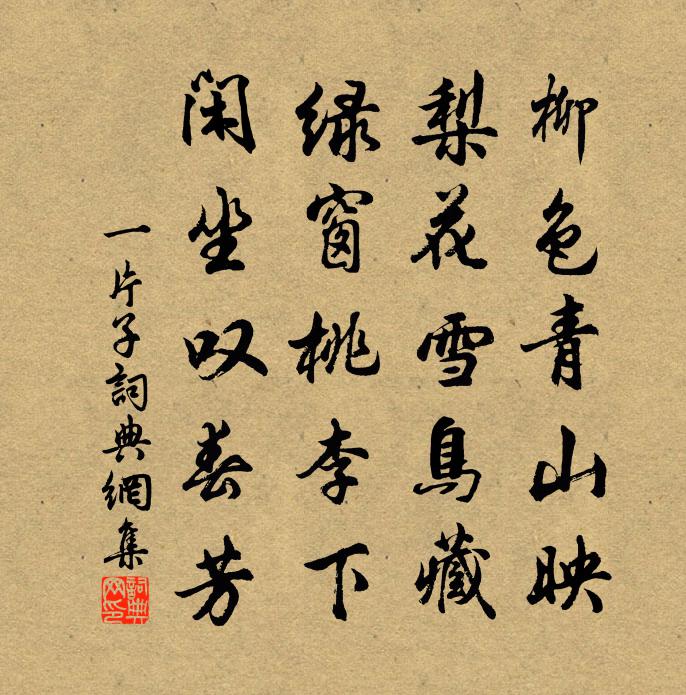 柳色青山映
梨花雪鳥藏
緑窗桃李下
閑坐叹春芳
一片子詞典網集
詞典
网印